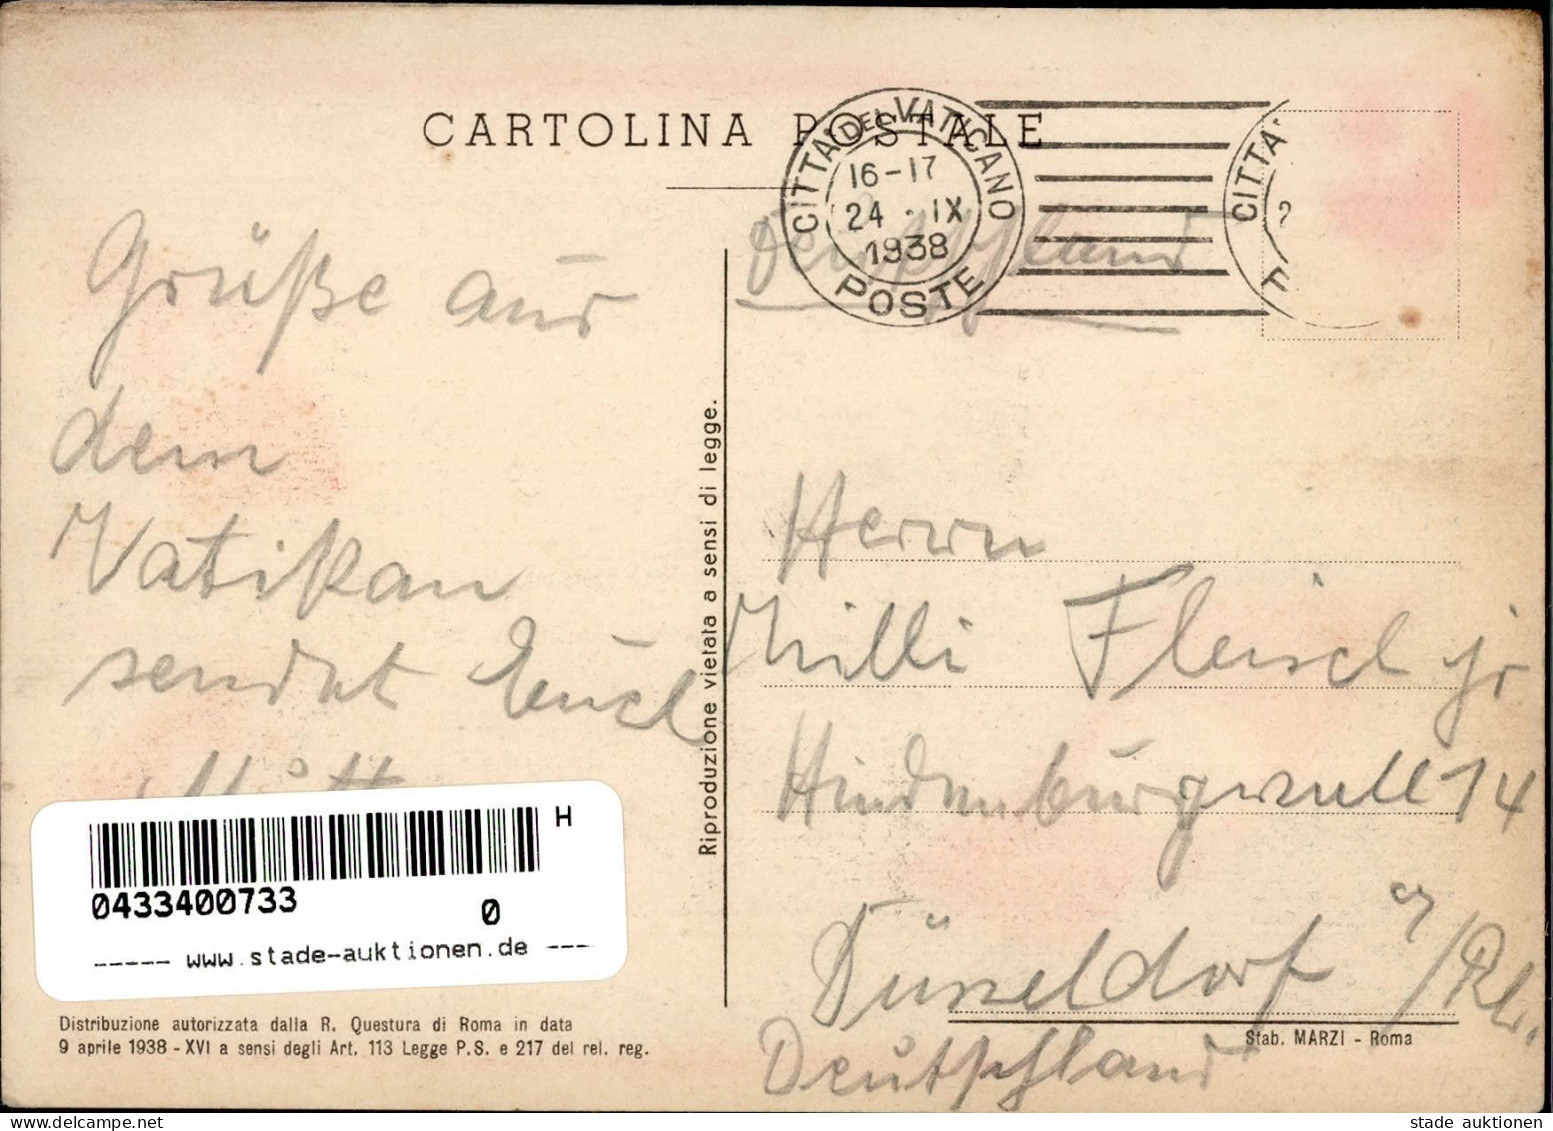 CARTOLINA POSTALE
CITTA DEL VATICANO
16-17
24 · IX
1938
POSTE
CITTA'
2
P
Deutschland
Grüße aus
dem
Vatikan
sendet Euch
Riproduzione vietata a sensi di legge.
Herrn
Willi Fleisch jr
Hindenburgwall 14
Düsseldorf a/Rh.
Deutschland
H
0433400733
0
----- www.stade-auktionen.de ---
Distribuzione autorizzata dalla R. Questura di Roma in data
9 aprile 1938 - XVI a sensi degli Art. 113 Legge P.S. e 217 del rel. reg.
Stab. MARZI - Roma
stade auktionen